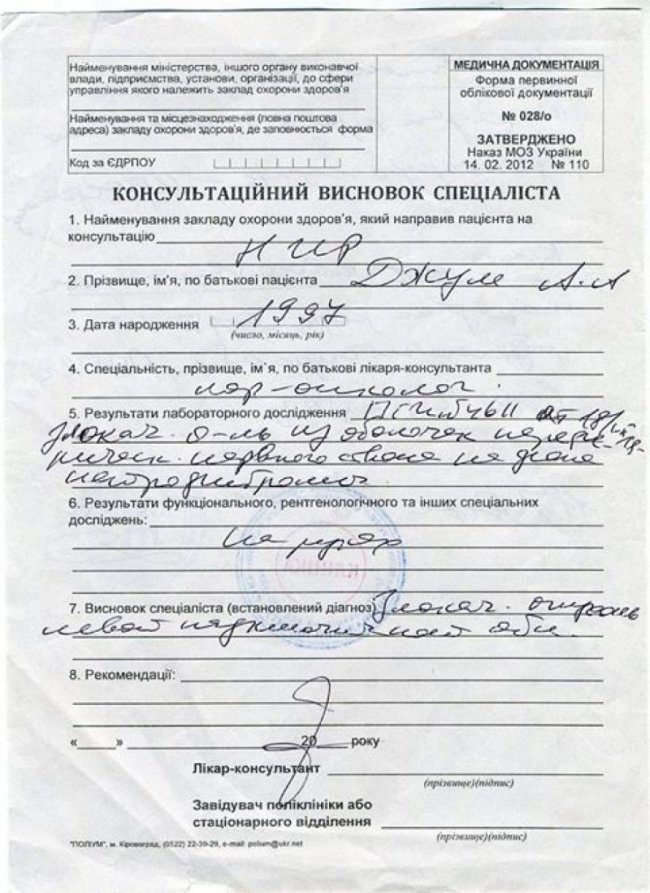 Найменування міністерства, іншого органу виконавчої
влади, підприємства, установи, організації, до сфери
управління якого належить заклад охорони здоров'я
Найменування та місцезнаходження (повна поштова
адреса) закладу охорони здоров'я, де заповнюється форма
Код за ЄДРПОУ
МЕДИЧНА ДОКУМЕНТАЦІЯ
Форма первинної
облікової документації
№ 028/о
ЗАТВЕРДЖЕНО
Наказ МОЗ України
14. 02. 2012 № 110
КОНСУЛЬТАЦІЙНИЙ ВИСНОВОК СПЕЦІАЛІСТА
1. Найменування закладу охорони здоров'я, який направив пацієнта на
консультацію
2. Прізвище, ім'я, по батькові пацієнта Джуле А.А
3. Дата народження 1997
(число, місяць, рік)
4. Спеціальність, прізвище, ім'я, по батькові лікаря-консультанта
лор-онколог
5. Результати лабораторного дослідження от
злокач. о-ль из оболочек
нервного ствола на фоне
6. Результати функціонального, рентгенологічного та інших спеціальних
досліджень:
на руках
КЛІНІКА
7. Висновок спеціаліста (встановлений діагноз) Злокач. опухоль
левой надключичной обл.
8. Рекомендації:
« » 20 року
Лікар-консультант
(прізвище)(підпис)
Завідувач поліклініки або
стаціонарного відділення
(прізвище)(підпис)
"ПОЛІУМ", м. Кіровоград, (0522) 22-39-29, e-mail: polium@ukr.net